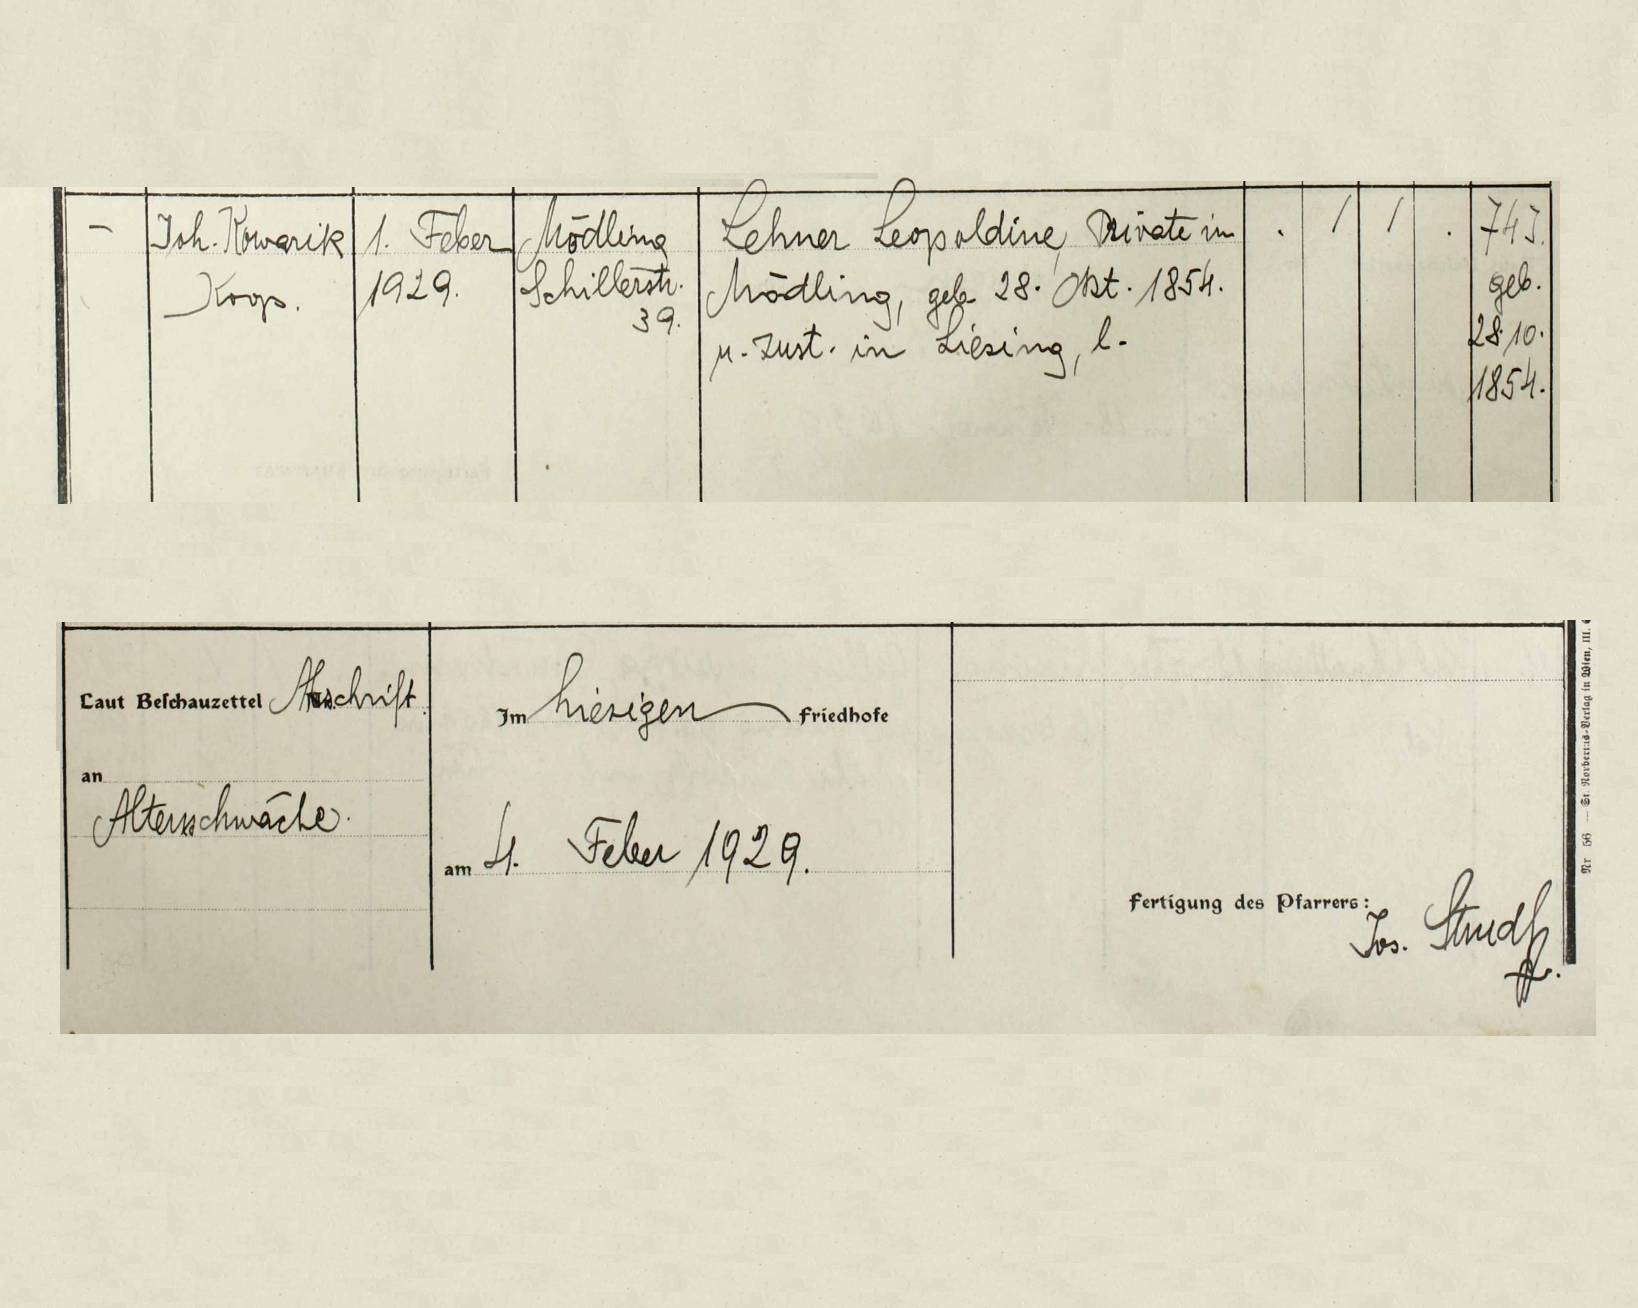 – Joh. Kowarik 1. Feber Mödling Lehner Leopoldine, Private in . / / . 74J.
Koop. 1929. Schillerstr. Mödling, geb. 28. Okt. 1854. geb.
39. u. zust. in Liesing, l. 28.10.
1854.
Laut Beschauzettel Abschrift.
an
Altersschwäche.
Im hiesigen Friedhofe
am 4. Feber 1929.
Fertigung des Pfarrers:
Jos.
Nr 56 — St. Norbertus-Verlag in Wien, III.